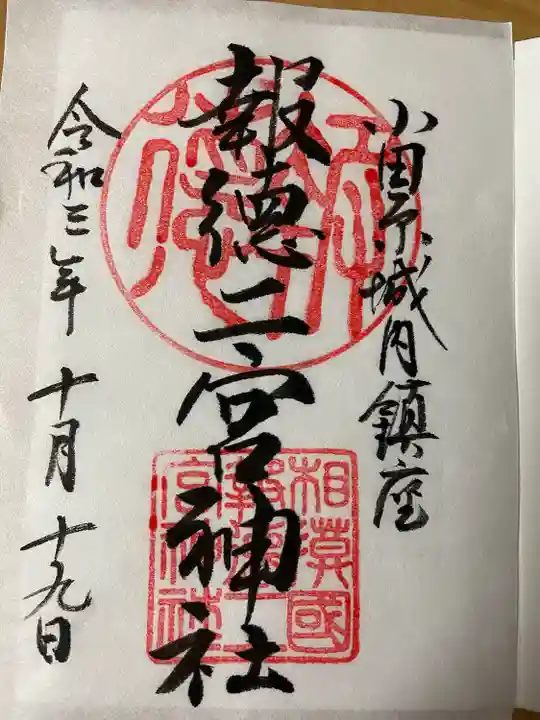 小田原城内鎮座
報徳二宮神社
令和三年十月十九日
相模國
報徳二
宮神社